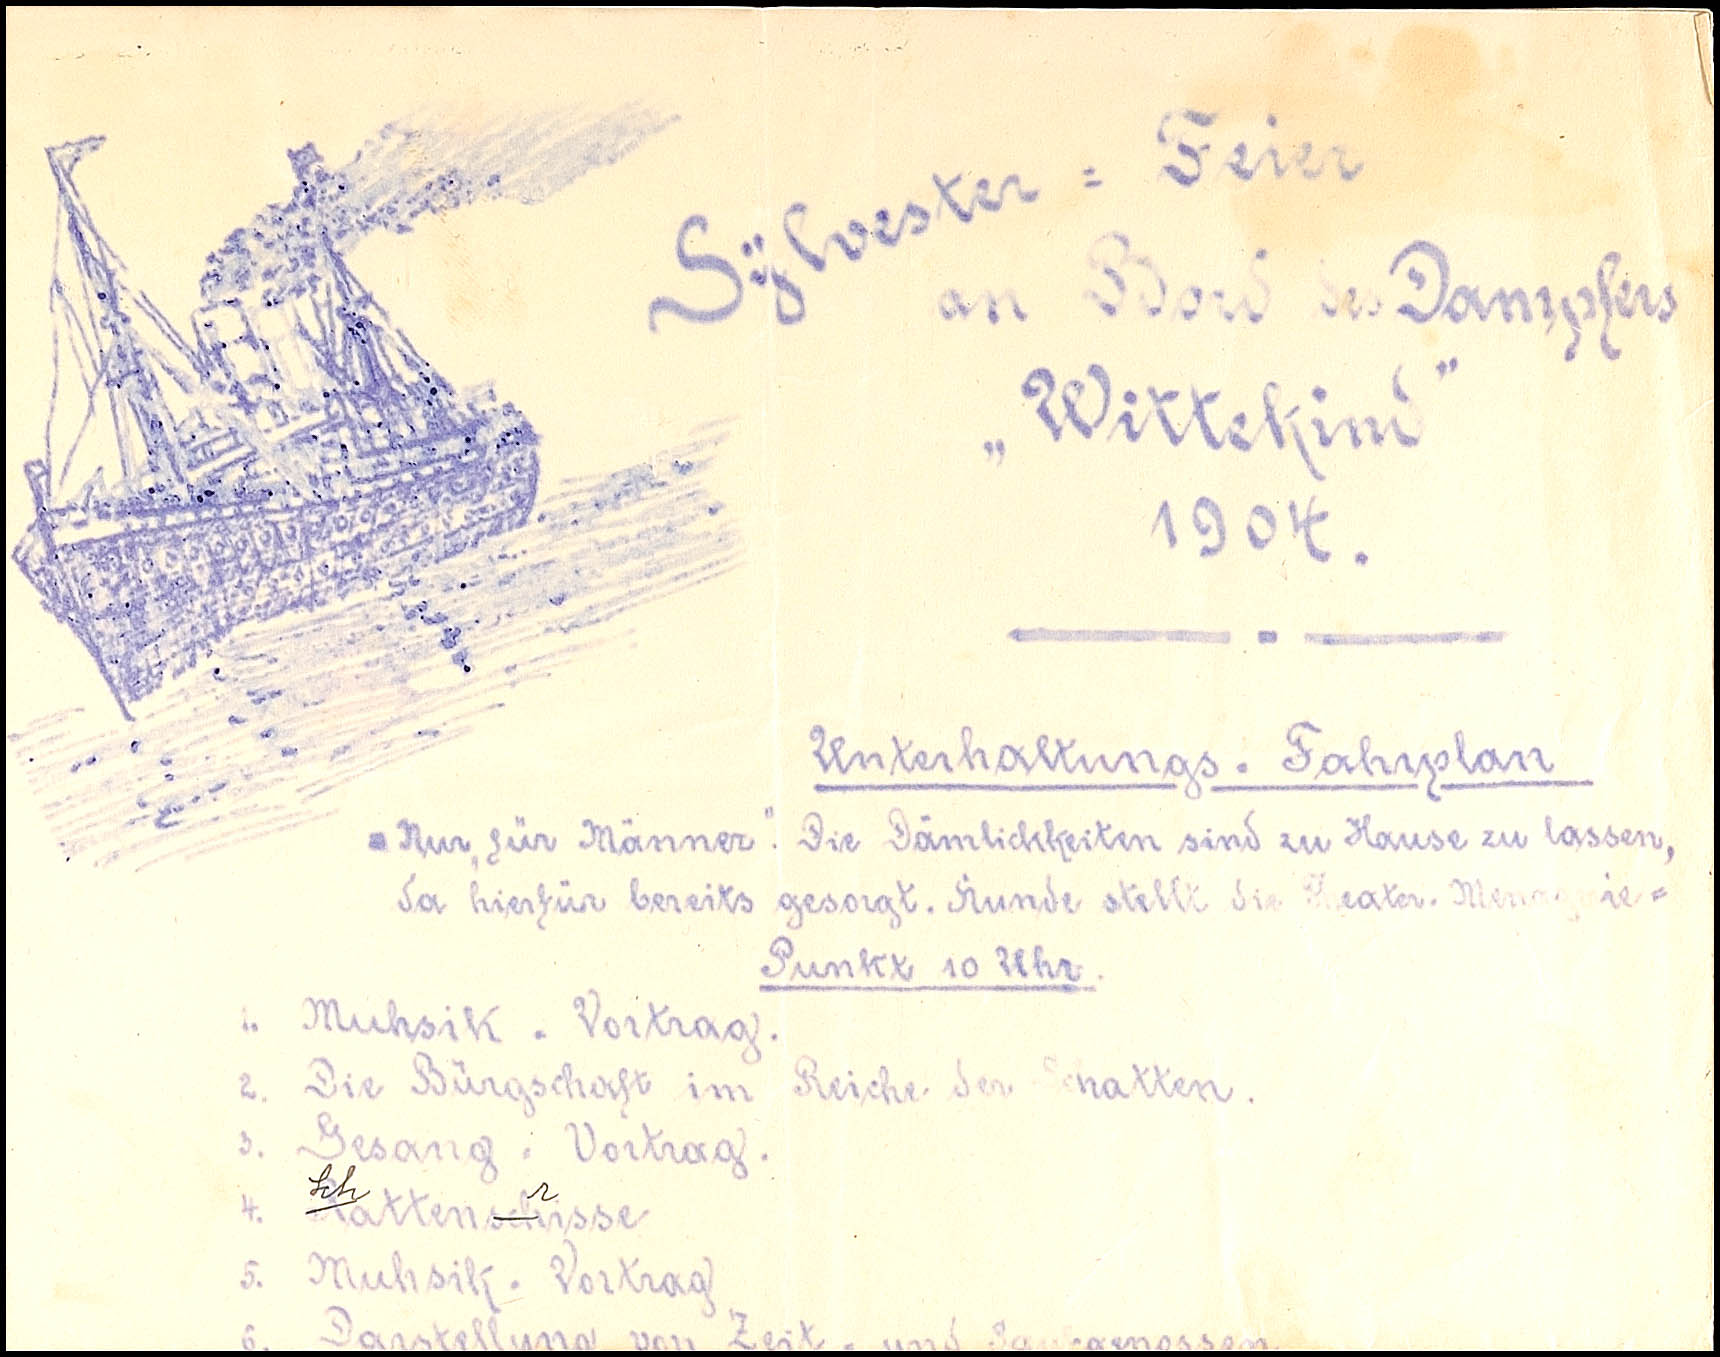 Sÿlvester = Feier
an Bord des Dampfers
„Wittekind"
1904.
Unterhaltungs - Fahrplan
Nur „für Männer". Die Dämlichkeiten sind zu Hause zu lassen,
da hierfür bereits gesorgt. Hunde stellt die Theater-Menagerie =
Punkt 10 Uhr.
1. Muhsik - Vortrag.
2. Die Bürgschaft im Reiche der Schatten.
3. Gesang - Vortrag.
Sch r
4. Rattenschisse
5. Muhsik - Vortrag
6. Darstellung von Zeit - und